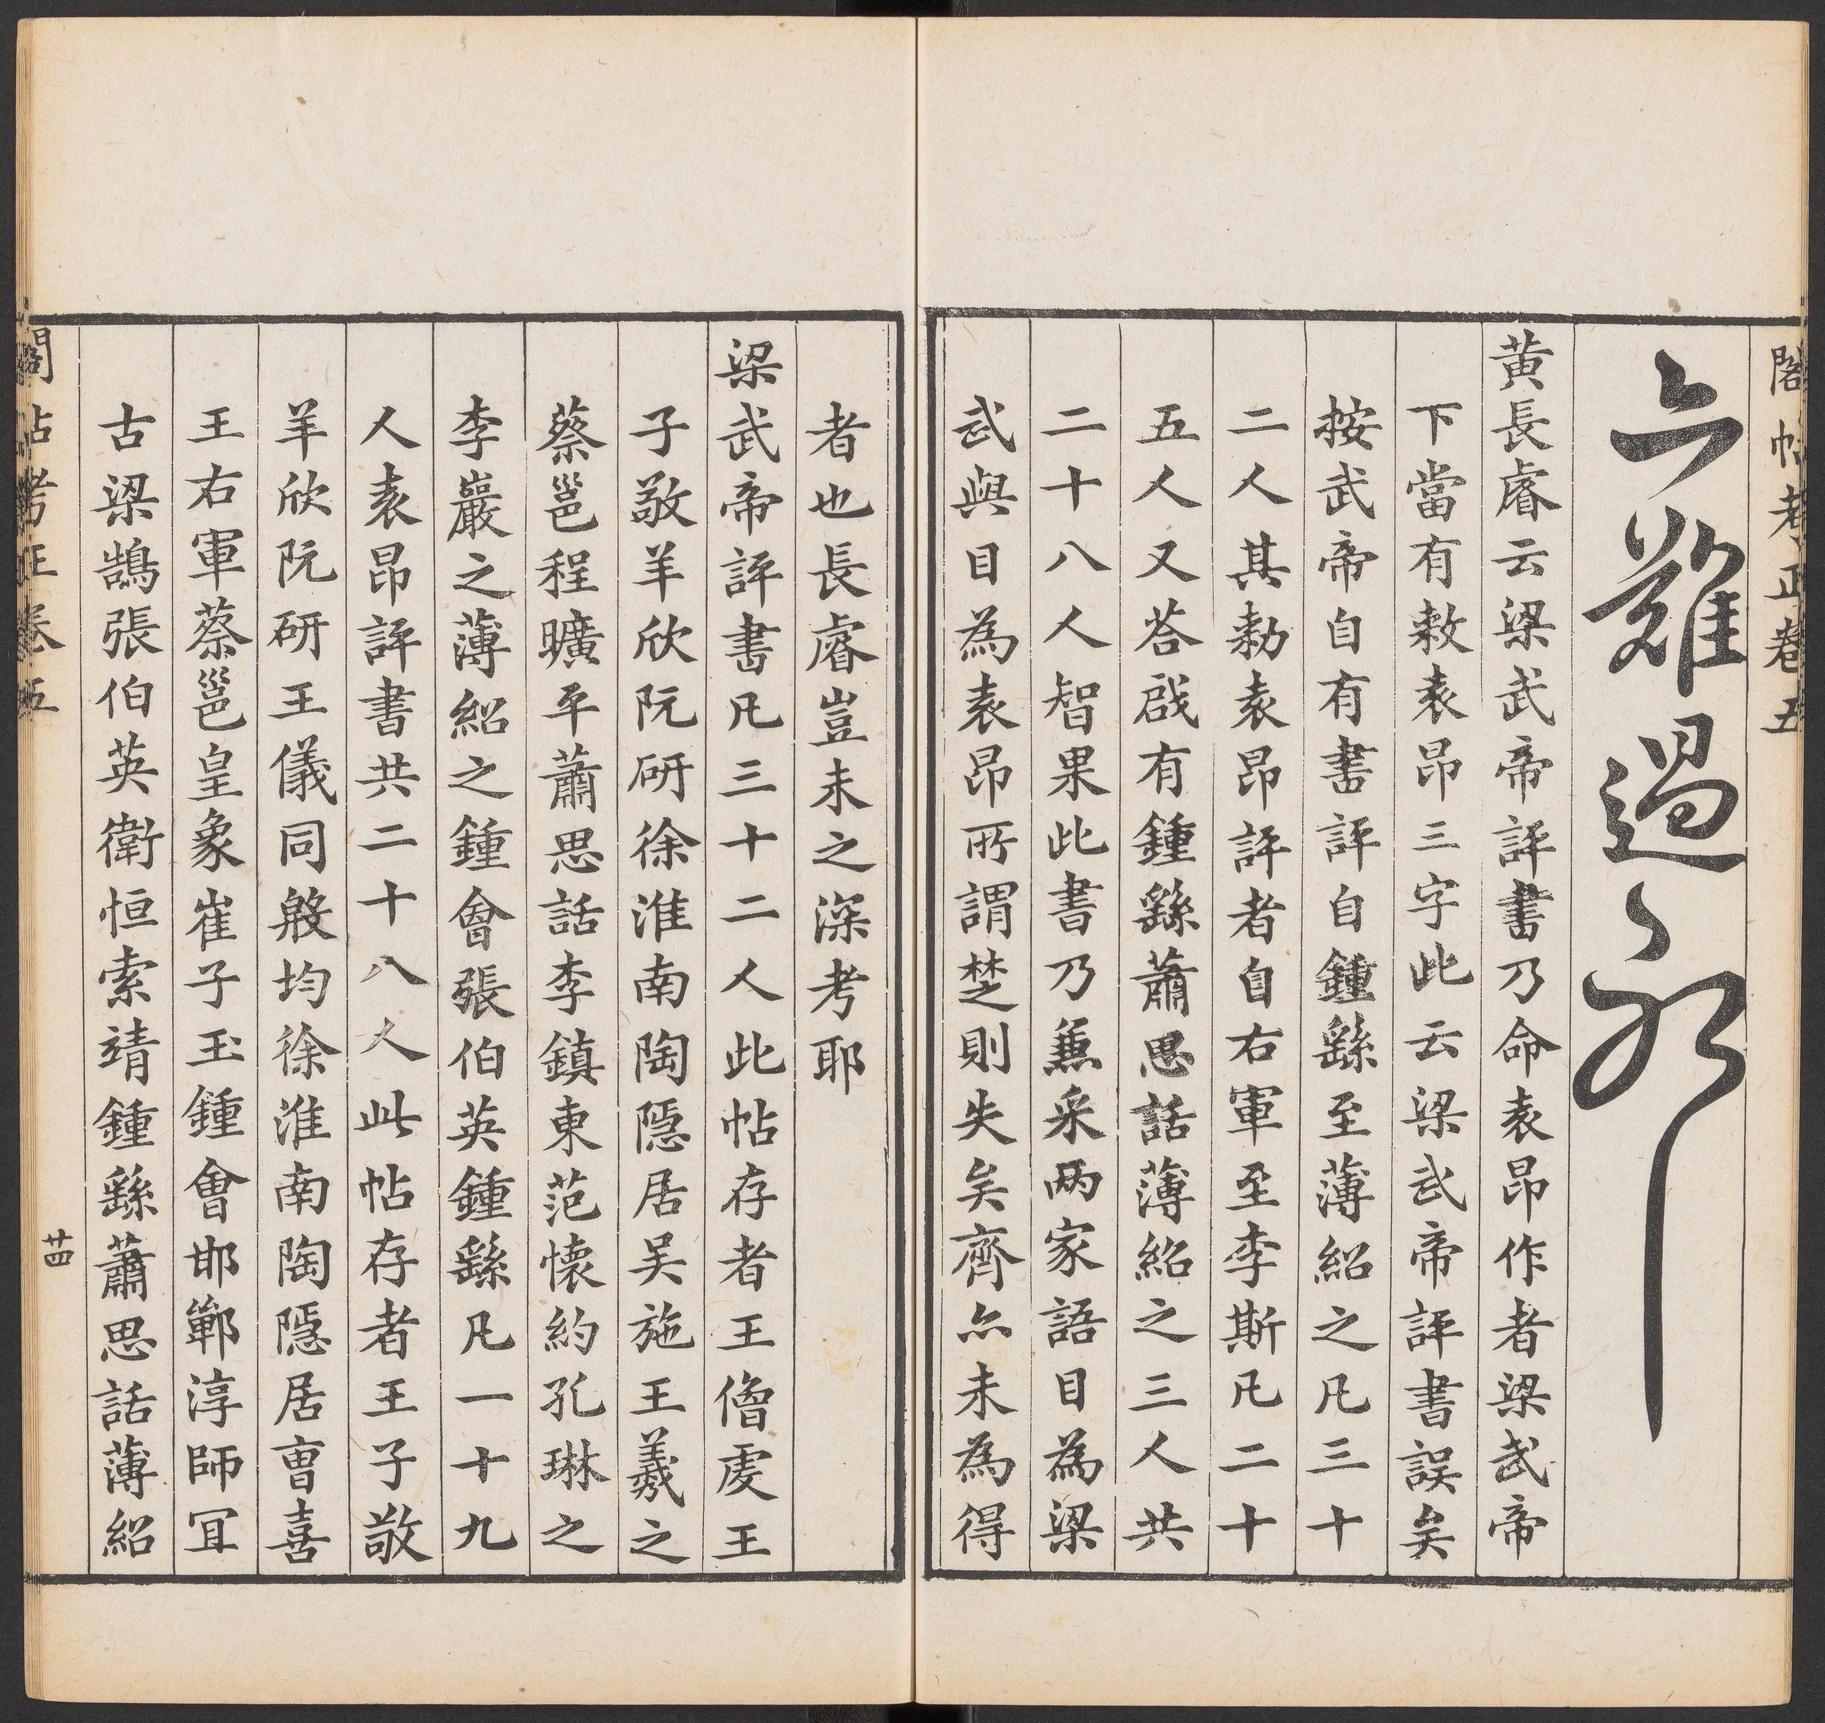 閣帖考正卷五
亦難過〻
黃長睿云梁武帝評書乃命袁昂作者梁武帝
下當有敕袁昂三字此云梁武帝評書誤矣
按武帝自有書評自鍾繇至薄紹之凡三十
二人其勑袁昂評者自右軍至李斯凡二十
五人又荅啟有鍾繇蕭思話薄紹之三人共
二十八人智果此書乃兼采兩家語目為梁
武與目為袁昂所謂楚則失矣齊亦未為得
者也長睿豈未之深考耶
梁武帝評書凡三十二人此帖存者王僧虔王
子敬羊欣阮研徐淮南陶隱居吴施王羲之
蔡邕程曠平蕭思話李鎮東范懷約孔琳之
李巖之薄紹之鍾會張伯英鍾繇凡一十九
人袁昂評書共二十八人此帖存者王子敬
羊欣阮研王儀同殷均徐淮南陶隱居曹喜
王右軍蔡邕皇象崔子玉鍾會邯鄲淳師冝
古梁鵠張伯英衛恒索靖鍾繇蕭思話薄紹
閣帖考正卷五
茁